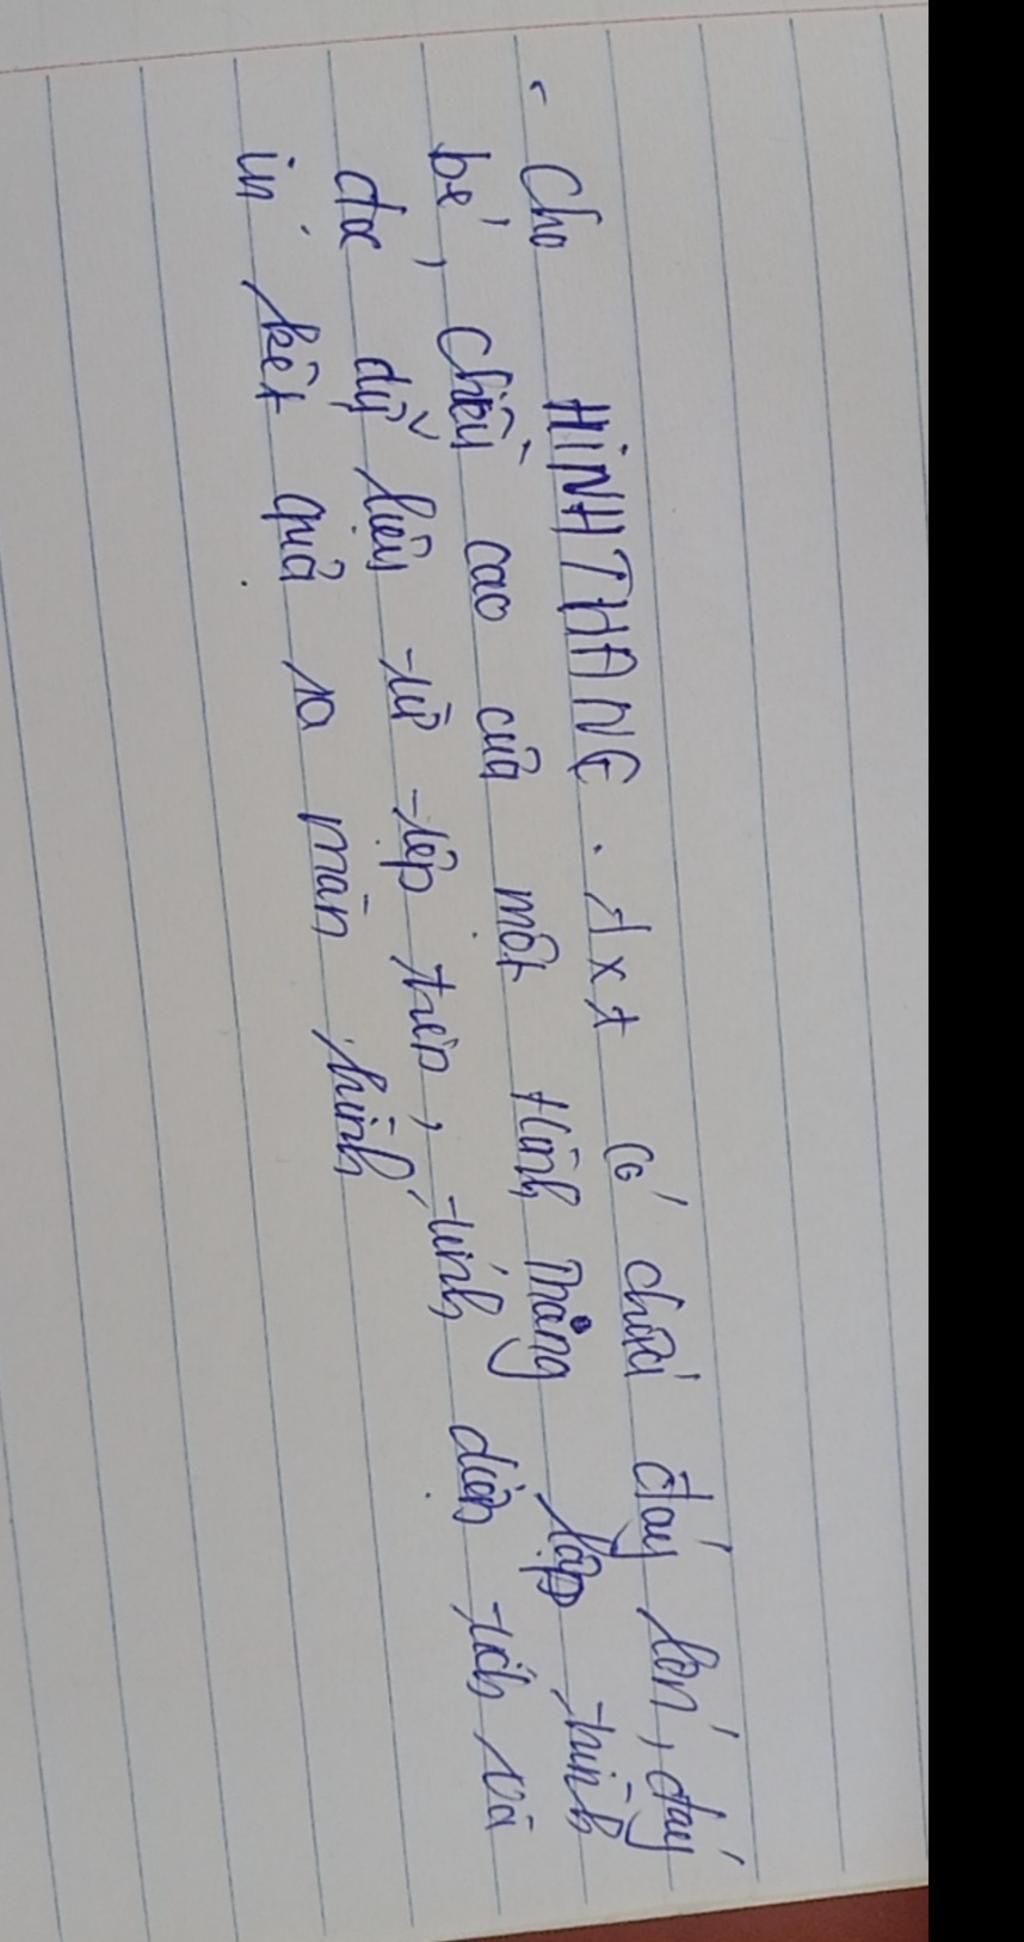 - Cho HINHTHANG.txt có chứa đáy lớn, đáy
bé, Chiều cao của một Hình Thang lập trình
đọc dữ liệu từ tệp trên, tính diện tích và
in kết quả ra màn hình